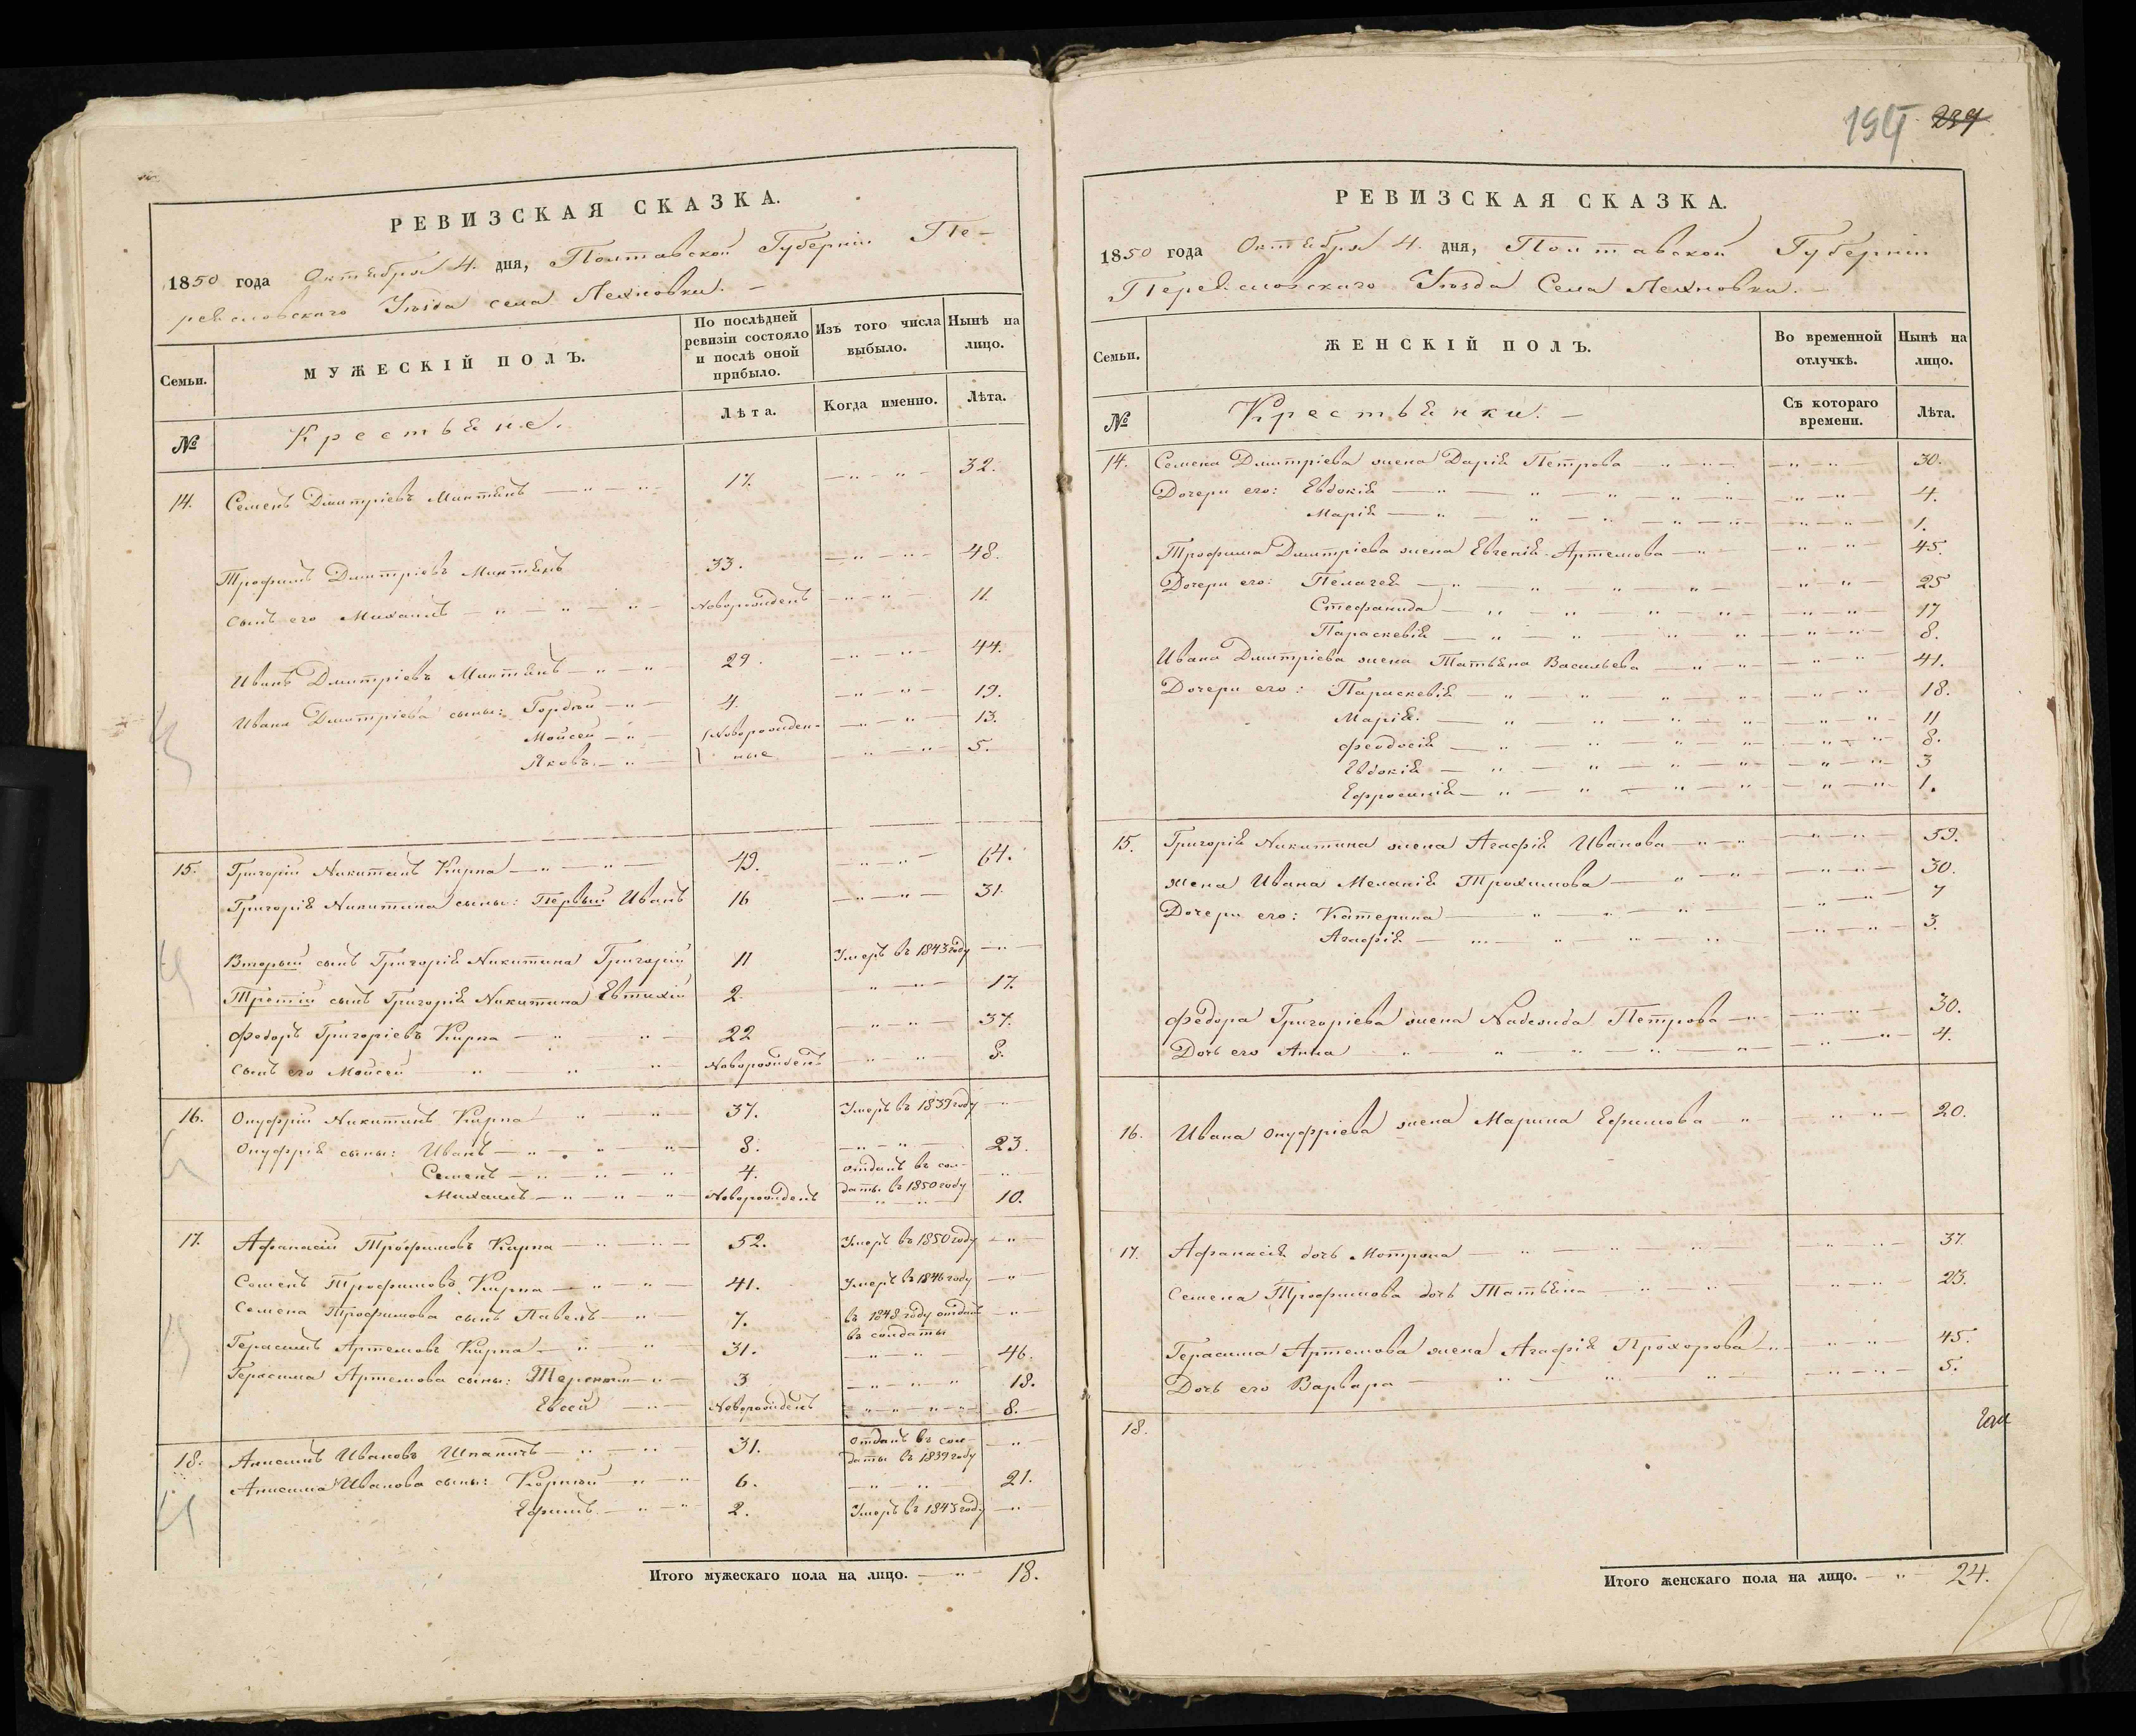 РЕВИЗСКАЯ СКАЗКА.
1850 года Октября 4. дня, Полтавской Губерніи Пе-
реясловскаго Уѣзда села Лехновки. —
Семьи.
МУЖЕСКІЙ ПОЛЪ.
По послѣдней ревизіи состояло и послѣ оной прибыло.
Изъ того числа выбыло.
Нынѣ на лицо.
№
Крестьяне.
Лѣта.
Когда именно.
Лѣта.
14. Семенъ Дмитріевъ 17. 32.
Трофимъ Дмитріевъ 33. 48.
Сынъ его Михаилъ Новорожденъ 11.
Иванъ Дмитріевъ 29. 44.
Ивана Дмитріева сыны: Гордѣй 4. 19.
Мойсей Новорожден- 13.
Яковъ. ные 5.
15. Григорій Никитинъ Кирпа 49. 64.
Григорія Никитина сыны: Первый Иванъ 16 31.
Вторый сынъ Григорія Никитина Григорій 11 Умеръ въ 1843 году
Третій сынъ Григорія Никитина Евтихій 2. 17.
Федоръ Григоріевъ Кирпа 22 37.
Сынъ его Мойсей Новорожденъ 8.
16. Онуфрій Никитинъ Кирпа 37. Умеръ въ 1839 году
Онуфрія сыны: Иванъ 8. 23.
Семенъ 4. Отданъ въ сол-
даты въ 1850 году
Михаилъ Новорожденъ 10.
17. Афанасій Трофимовъ Кирпа 52. Умеръ въ 1850 году
Семенъ Трофимовъ Кирпа 41. Умеръ въ 1846 году
Семена Трофимова сынъ Павелъ 7. въ 1848 году отданъ
въ солдаты
Герасимъ Артемовъ Кирпа 31. 46.
Герасима Артемова сыны: Терентій 3 18.
Евсей Новорожденъ 8.
18. Анисимъ Ивановъ 31. Отданъ въ сол-
даты въ 1839 году
Анисима Иванова сыны: Корнѣй 6. 21.
Ефимъ 2. Умеръ въ 1843 году
Итого мужескаго пола на лицо. 18.
194 239
РЕВИЗСКАЯ СКАЗКА.
1850 года Октября 4. дня, Полтавской Губерніи
Переясловскаго Уѣзда Села Лехновки. —
Семьи.
ЖЕНСКІЙ ПОЛЪ.
Во временной отлучкѣ.
Нынѣ на лицо.
№
Крестьянки. —
Съ котораго времени.
Лѣта.
14. Семена Дмитріева жена Дарія Петрова 30.
Дочери его: Евдокія 4.
Марія 1.
Трофима Дмитріева жена Евгенія Артемова 45.
Дочери его: Пелагея 25
Стефанида 17
Параскевія 8.
Ивана Дмитріева жена Татьяна Васильева 41.
Дочери его: Параскевія 18.
Марія. 11
Феодосія 8.
Евдокія 3
Ефросинія 1.
15. Григорія Никитина жена Агафія Иванова 59.
жена Ивана Меланія Трохимова 30.
Дочери его: Катерина 7
Агафія 3.
Федора Григоріева жена Надежда Петрова 30.
Дочь его Анна 4.
16. Ивана Онуфріева жена Марина Ефимова 20.
17. Афанасія дочь Мотрона 37.
Семена Трофимова дочь Татьяна 23.
Герасима Артемова жена Агафія Прохорова 45.
Дочь его Варвара 5.
18.
Итого женскаго пола на лицо. 24.